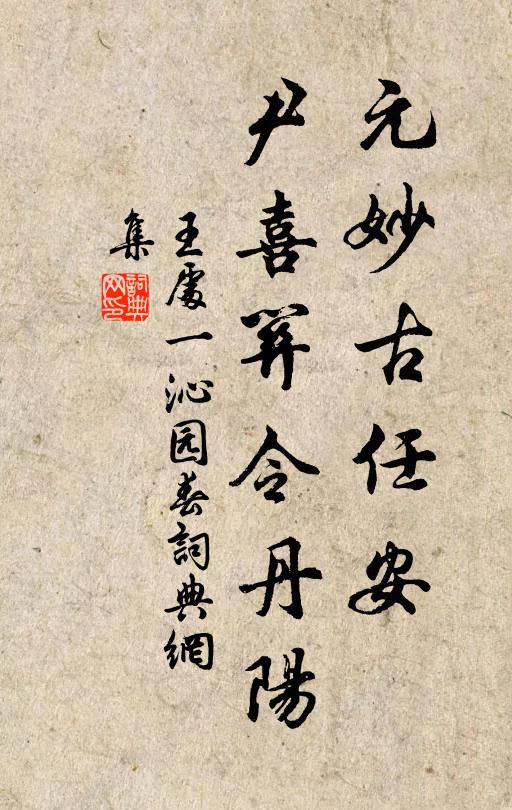 元妙古任安
尹喜筭令丹陽
王處一沁园春詞典網
集
詞典
网印